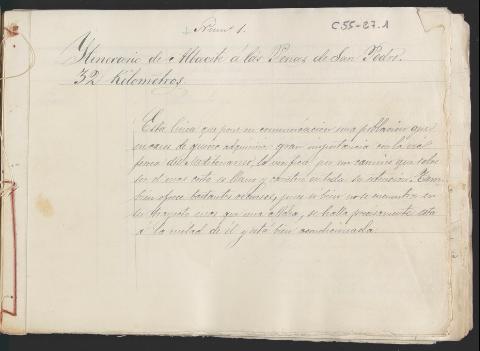 Num.º 1.
C 55-27.1
Ytinerario de Albacete á las Penas de San Pedro.
32 Kilómetros.
Esta linea que pone en comunicacion una poblacion que
en caso de guerra adquiriria gran importancia con la
del Mediterraneo, lo verifica por un camino que sobre
ser el mas corto es llano y carretero en toda su estension. Tam
bien ofrece bastantes recursos, pues si bien no se encuentra en
su trayecto mas que una aldea, se halla precisamente esta
á la mitad de él y está bien acondicionada